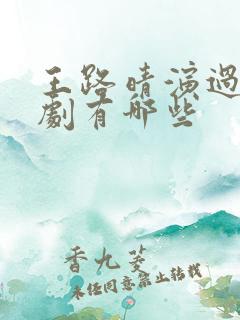 王路晴演過
劇有哪些
香九菱
未經同意禁止轉載